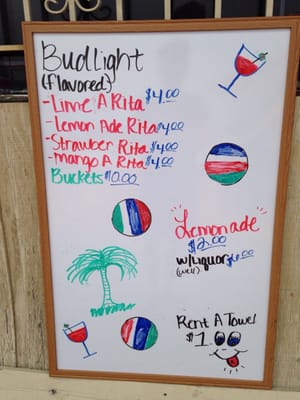 Bud Light
(flavored)
- Lime A Rita $4.00
- Lemon Ade Rita $4.00
- Strawber Rita $4.00
- mango A Rita $4.00
Buckets $10.00
Lemonade
$2.00
w/Liquor $6.00
(well)
Rent A Towel
$1.